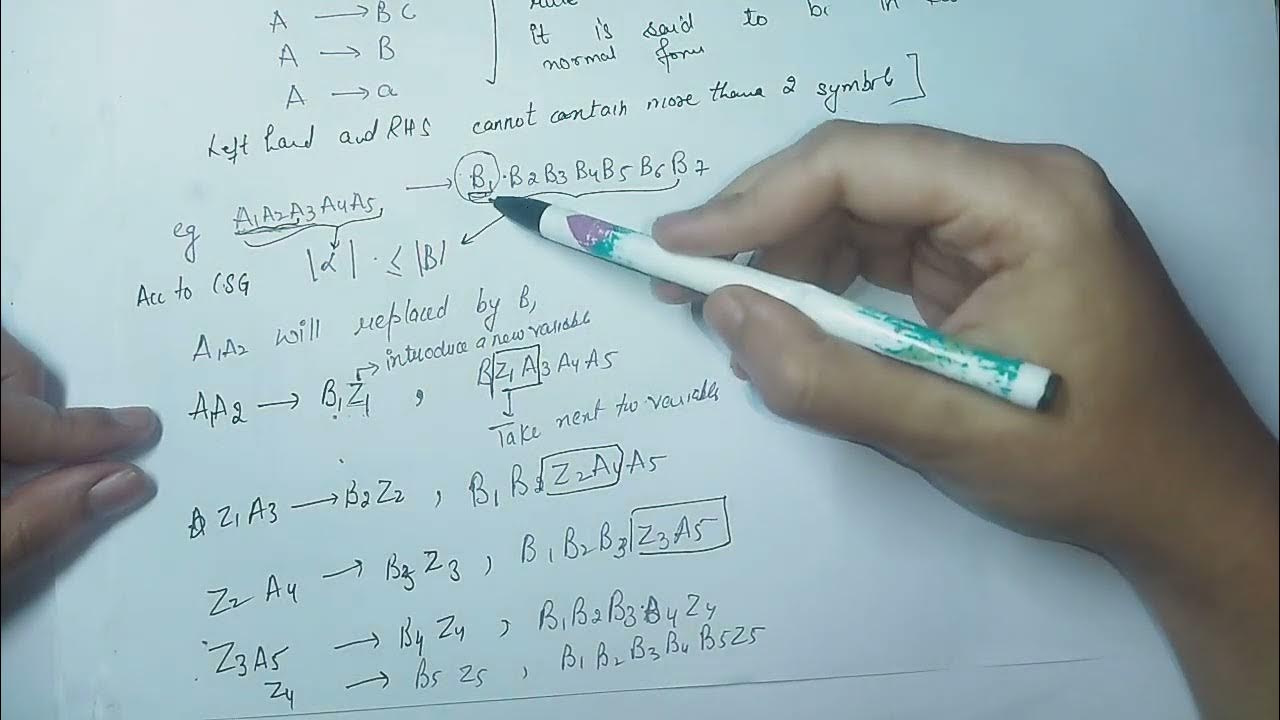 A → BC
A → B
A → a
it is said to be in
normal form
Left hand and RHS cannot contain more than 2 symbol]
eg A1A2A3A4A5 → B1·B2B3B4B5B6B7
Acc to CSG |α| · ≤ |B|
A1A2 will replaced by B1
→ introduce a new variable
A1A2 → B1Z1 , BZ1A3A4A5
Take next two variable
Z1A3 → B2Z2 , B1B2Z2A4A5
Z2A4 → B3Z3 , B1B2B3Z3A5
Z3A5 → B4Z4 , B1B2B3B4Z4
Z4 → B5Z5 , B1B2B3B4B5Z5